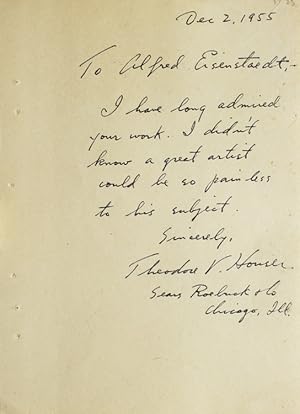 Dec 2, 1955
To Alfred Eisenstaedt,-
I have long admired
your work. I didn't
know a great artist
could be so painless
to his subject.
Sincerely,
Theodore V. Houser
Sears Roebuck & Co
Chicago, Ill.